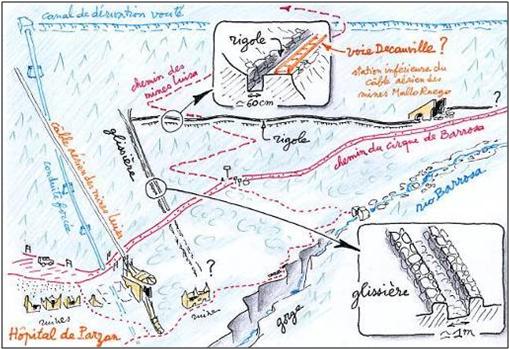 canal de dérivation voûté
rigole
voie Decauville ?
station inférieure du
câble aérien des
mines Mallo Ruego
≈ 60cm
chemin des
mines Luisa
?
glissière
rigole
chemin du cirque de Barrosa
câble aérien des mines Luisa
conduite forcée
rio Barrosa
?
glissière
≈ 1m
ruines
ruine
gorge
Hôpital de Parzan